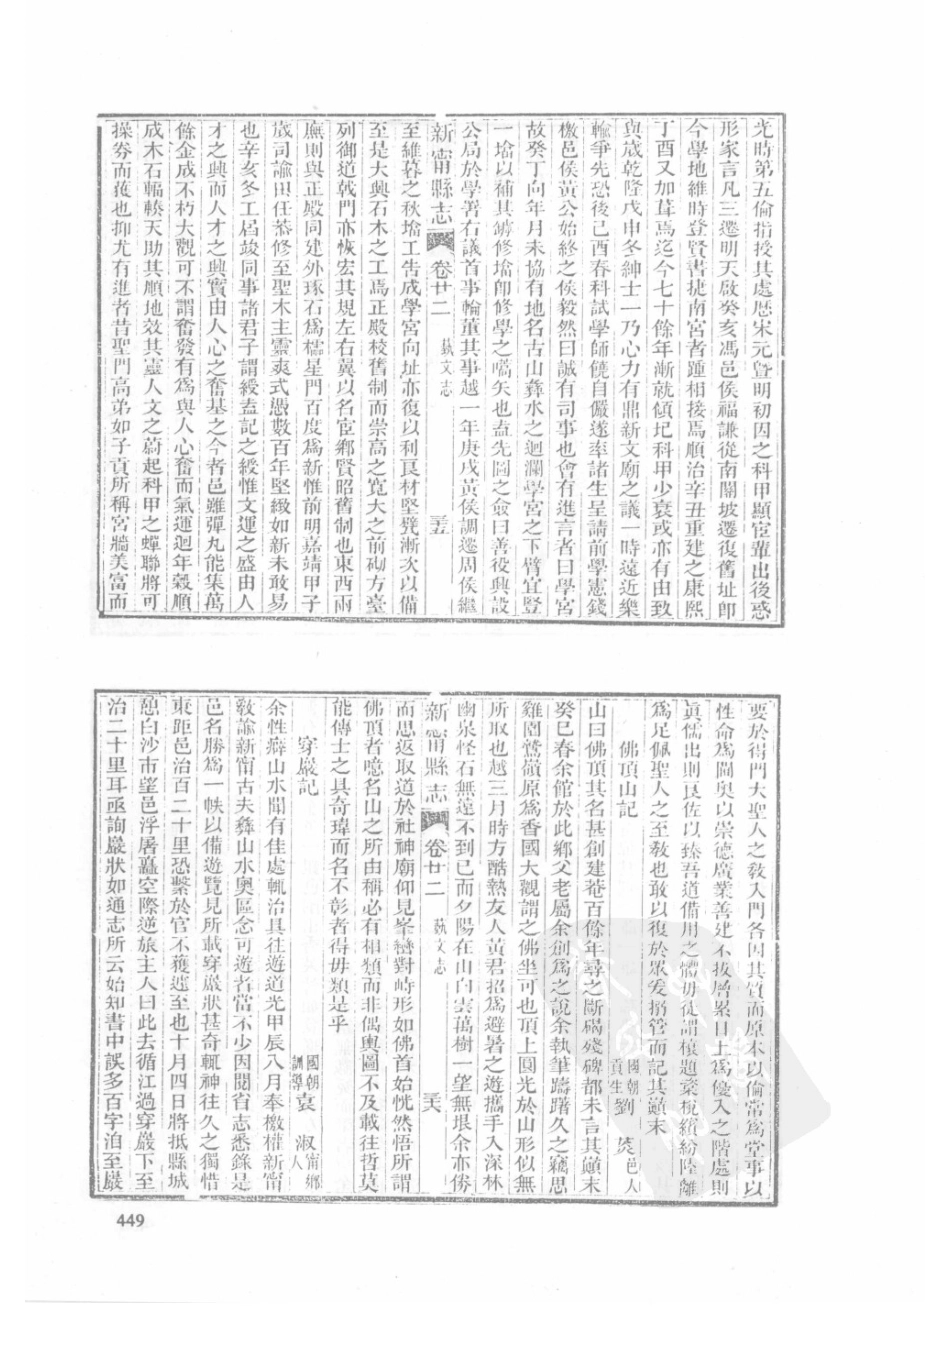 光時第五倫指授其處歷宋元暨明初因之科甲顯宦輩出後惑
形家言凡三遷明天啟癸亥馮邑侯福謙從南關坡遷復舊址即
今學地維時登賢書捷南宮者踵相接焉順治辛丑重建之康熙
丁酉又加葺焉迄今七十餘年漸就傾圮科甲少衰或亦有由致
與歲乾隆戊申冬紳士一乃心力有鼎新文廟之議一時遠近樂
輸爭先恐後己酉春科試學師饒自儼遂率諸生呈請前學憲錢
檄邑侯黃公始終之侯毅然曰誠有司事也會有進言者曰學宮
故癸丁向年月未協有地名古山彝水之迴瀾學宮之下臂宜豎
一塔以補其罅修塔卽修學之嚆矢也盍先圖之僉曰善役興設
公局於學署右議首事輪董其事越一年庚戌黃侯調遷周侯繼
新甯縣志 卷廿二 藝文志 三五
至維暮之秋塔工告成學宮向址亦復以利良材堅甓漸次以備
至是大興石木之工焉正殿校舊制而崇高之寬大之前砌方臺
列御道戟門亦恢宏其規左右翼以名宦鄉賢昭舊制也東西兩
廡則與正殿同建外琢石爲櫺星門百度爲新惟前明嘉靖甲子
歲司諭田任恭修至聖木主靈爽式憑數百年堅緻如新未敢易
也辛亥冬工屆竣同事諸君子謂綬盍記之綬惟文運之盛由人
才之興而人才之興實由人心之奮基之今者邑雖彈丸能集萬
餘金成不朽大觀可不謂奮發有爲與人心奮而氣運迴年穀順
成木石輻輳天助其順地效其靈人文之蔚起科甲之蟬聯將可
操券而獲也抑尤有進者昔聖門高弟如子貢所稱宮牆美富而
要於得門大聖人之敎入門各因其質而原本以倫常爲堂事以
性命爲閫奧以崇德廣業善建不拔層累日上爲優入之階處則
眞儒出則良佐以臻吾道備用之體毋徒謂榱題棻梲繽紛陸離
爲足佩聖人之至敎也敢以復於眾爰搦管而記其顚末
佛頂山記 國朝貢生劉 煚邑人
山曰佛頂其名甚創建菴百餘年尋之斷碣殘碑都未言其顚末
癸巳春余館於此鄉父老屬余創爲之說余執筆躊躇久之竊思
雞園鷲嶺原爲香國大觀謂之佛坐可也頂上圓光於山形似無
所取也越三月時方酷熱友人黃君招爲避暑之遊攜手入深林
幽泉怪石無遠不到已而夕陽在山白雲萬樹一望無垠余亦倦
新甯縣志 卷廿二 藝文志 三六
而思返取道於社神廟仰見峯巒對峙形如佛首始恍然悟所謂
佛頂者噫名山之所由稱必有相類而非偶輿圖不及載往哲莫
能傳士之具奇瑋而名不彰者得毋類是乎
穿巖記 國朝訓導袁 淑甯鄉人
余性癖山水聞有佳處輒治具往遊道光甲辰八月奉檄權新甯
敎諭新甯古夫彝山水奧區念可遊者當不少因閱省志悉錄是
邑名勝爲一帙以備遊覽見所載穿巖狀甚奇輒神往久之獨惜
東距邑治百二十里恐繫於官不獲遽至也十月四日將抵縣城
憩白沙市望邑浮屠矗空際逆旅主人曰此去循江過穿巖下至
治二十里耳亟詢巖狀如通志所云始知書中誤多百字洎至巖
449